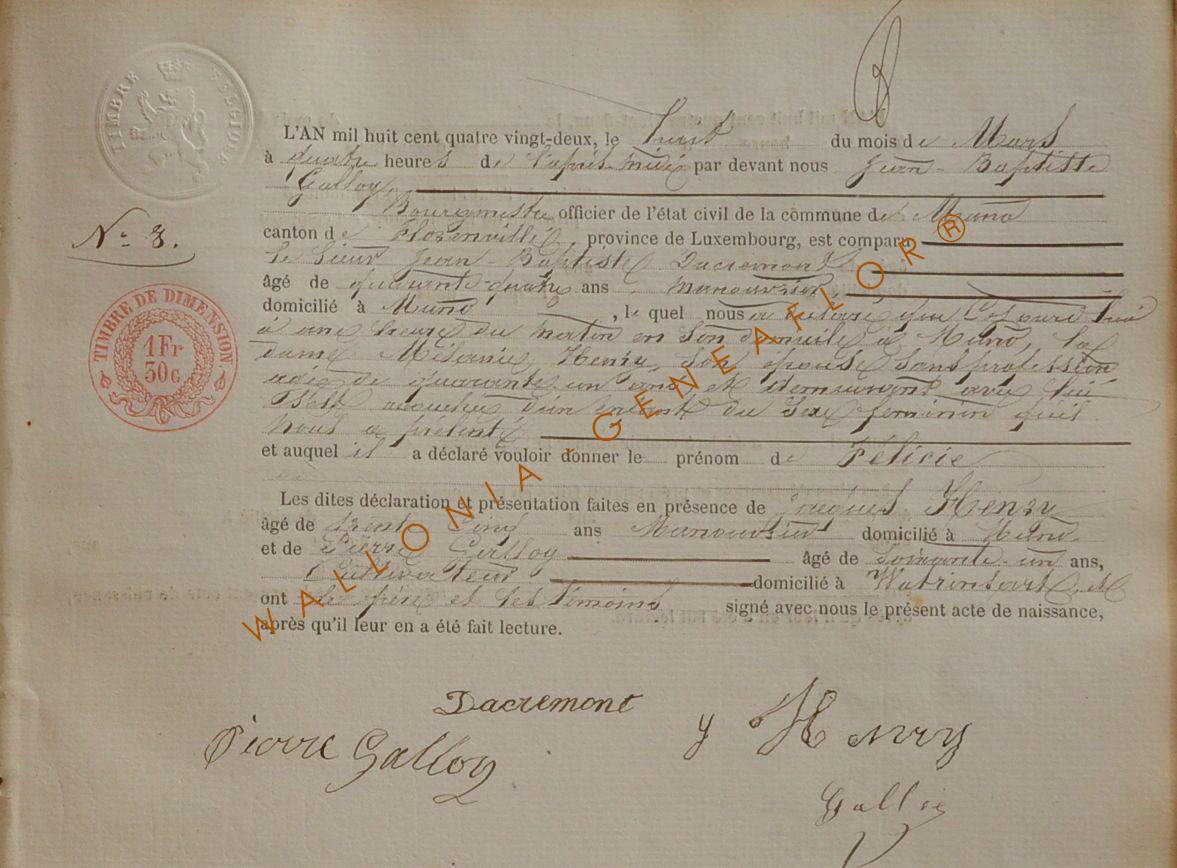 TIMBRE BELGIQUE
L'AN mil huit cent quatre vingt-deux, le huit du mois de Mars
à quatre heures de l'après midi par devant nous Jean-Baptiste
Galloy
Bourgmestre officier de l'état civil de la commune de Muno
No 8.
canton de Florenville, province de Luxembourg, est comparu
le Sieur Jean-Baptiste Dacremont
âgé de quarante-quatre ans manouvrier
domicilié à Muno, le quel nous a déclaré que cejourd'hui
TIMBRE DE DIMENSION
1 Fr
30 c
à une heure du matin en son domicile à Muno, la
dame Mélanie Henry, son épouse sans profession
agée de quarante un ans et demeurant avec lui
s'est accouchée d'un enfant du sexe féminin qu'il
nous a présenté
et auquel il a déclaré vouloir donner le prénom de Félicie
Les dites déclaration et présentation faites en présence de Jacques Henry
âgé de trente cinq ans Manouvrier domicilié à Muno
et de Pierre Galloy âgé de soixante-un ans,
Cultivateur domicilié à Watrinsart, et
ont le père et les témoins signé avec nous le présent acte de naissance,
après qu'il leur en a été fait lecture.
WALLONIA-GENEAFLOR®
Dacremont
Pierre Galloy
y Henry
Galloy